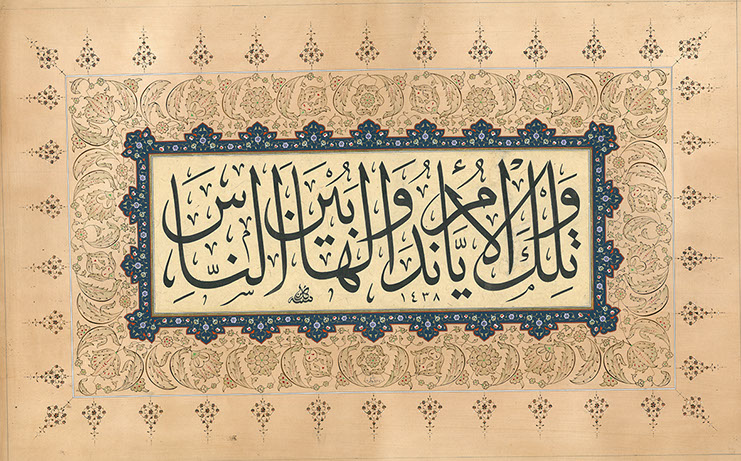 وَتِلْكَ الأَيَّامُ نُدَاوِلُهَا بَيْنَ النَّاسِ
١٤٣٨